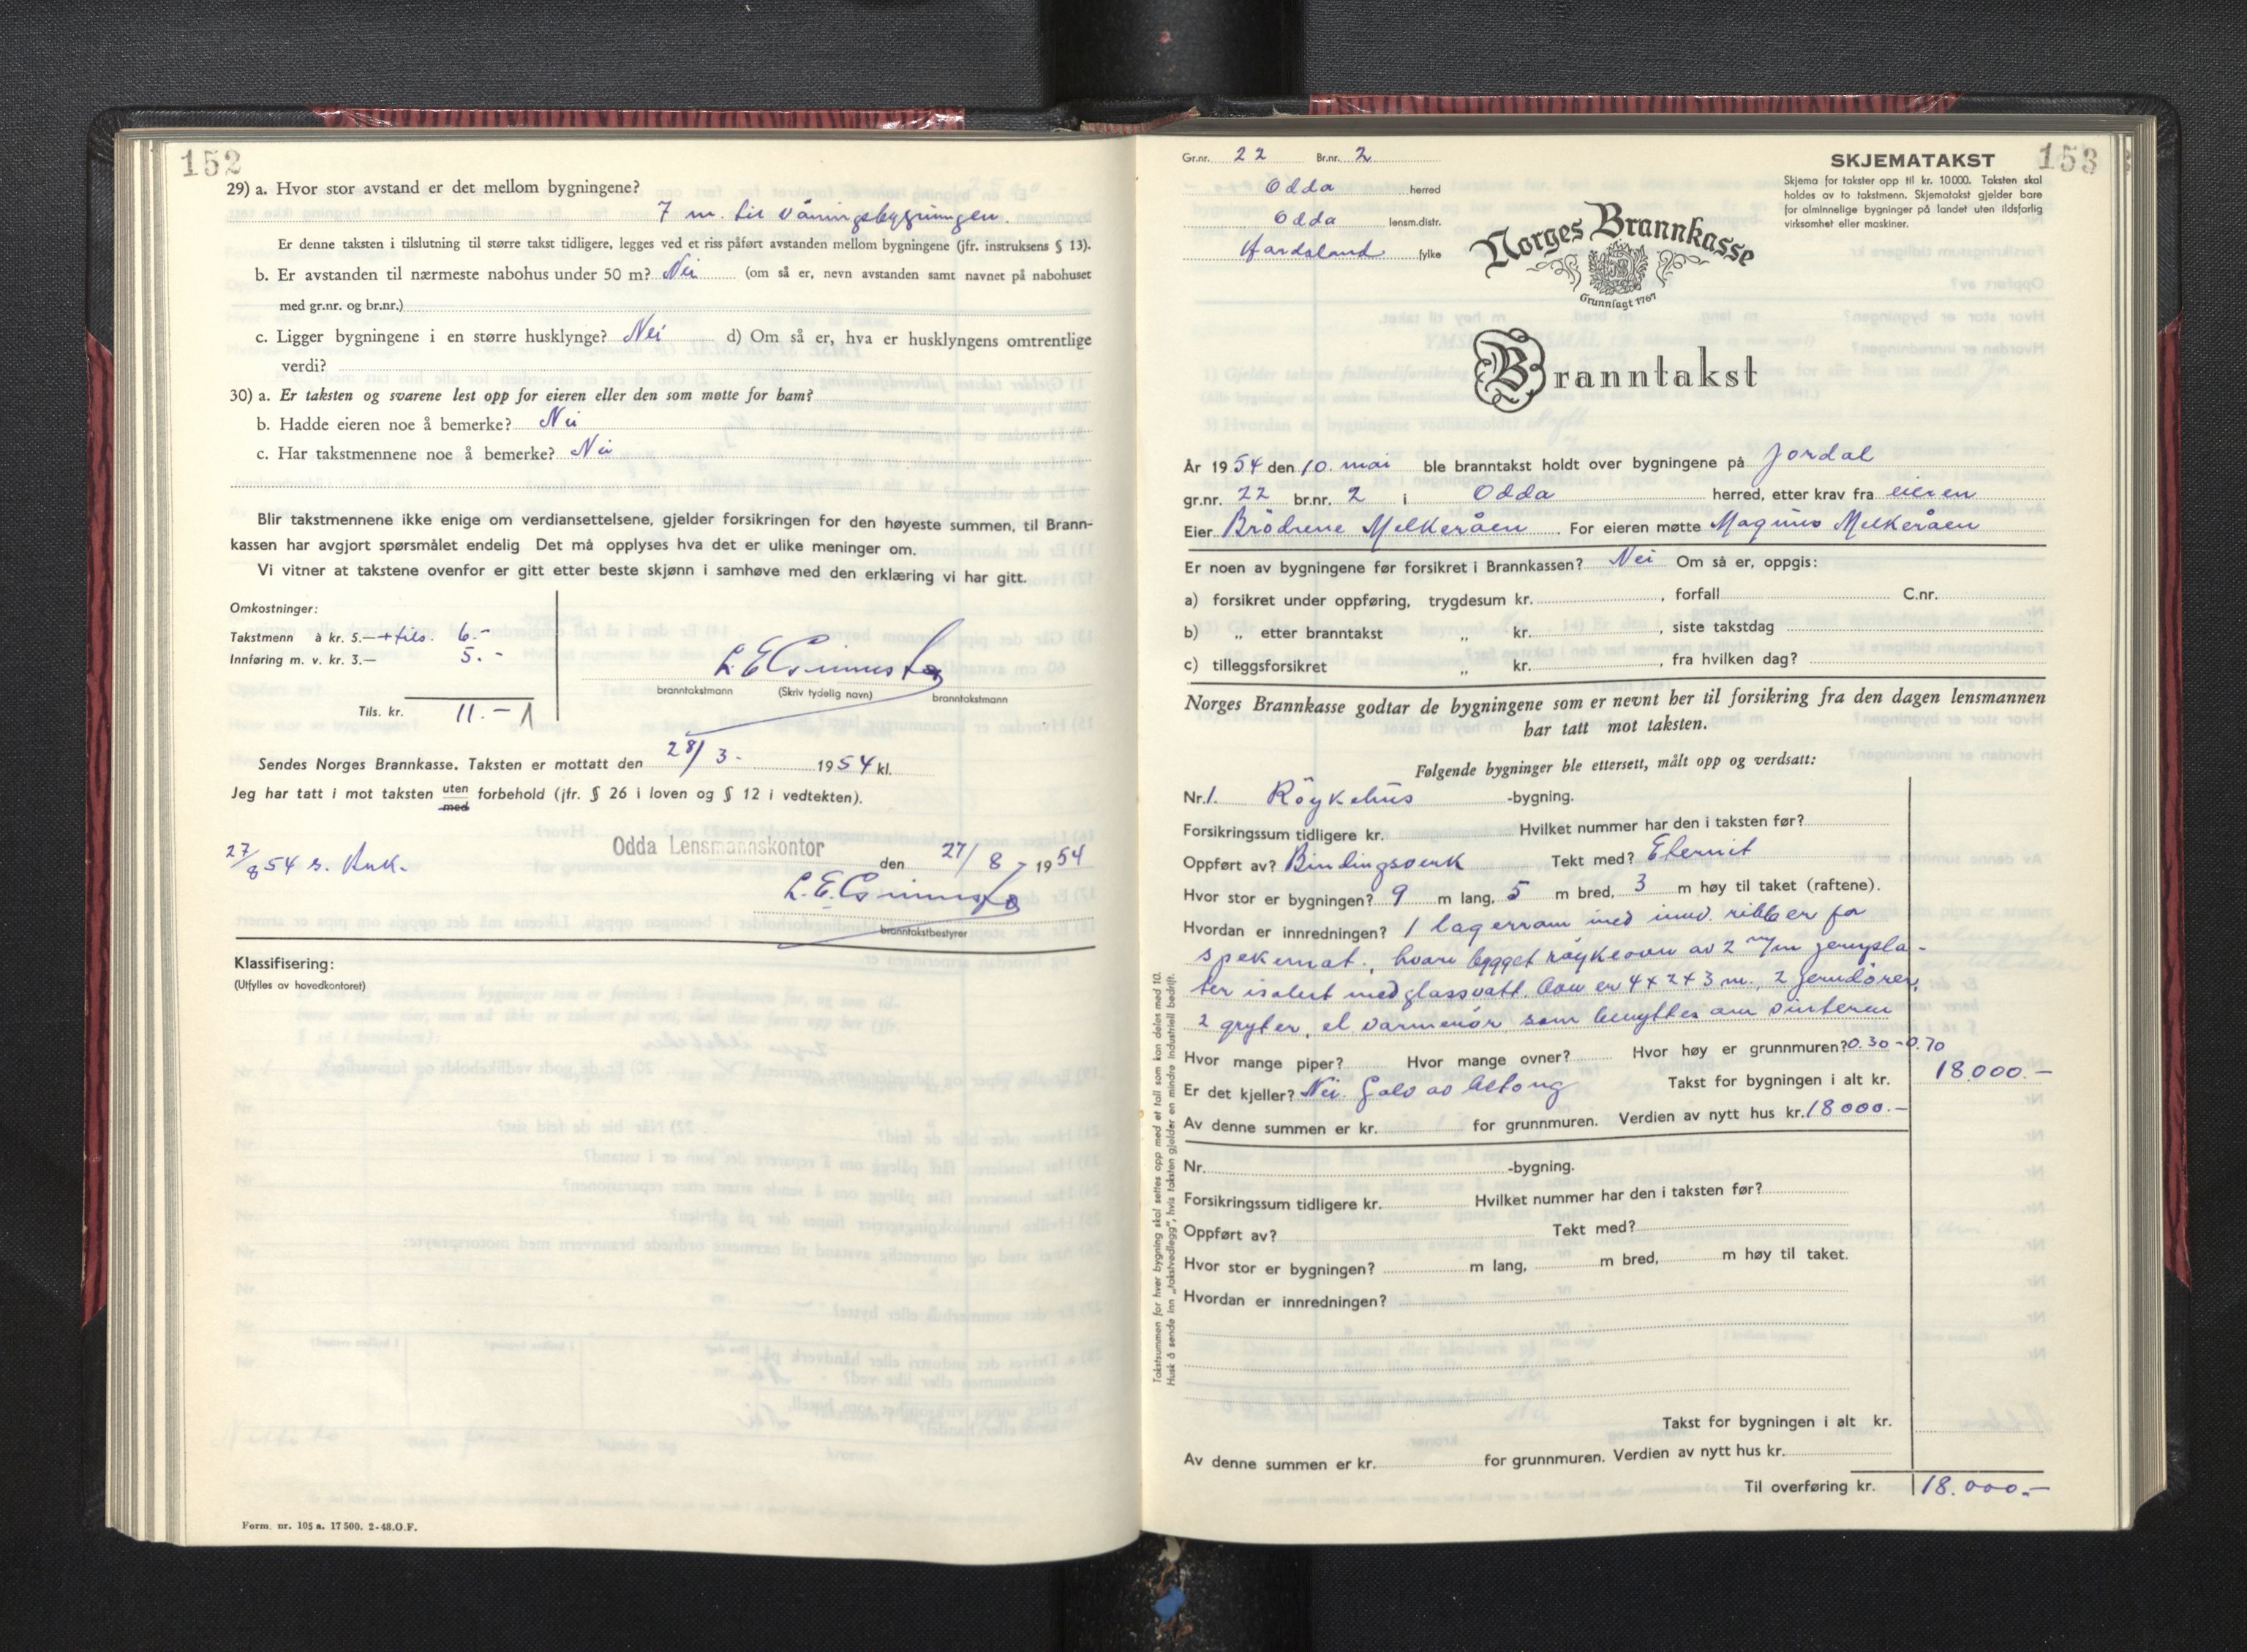 152
29) a. Hvor stor avstand er det mellom bygningene?
7 m. til våningsbygningen.
Er denne taksten i tilslutning til større takst tidligere, legges ved et riss påført avstanden mellom bygningene (jfr. instruksens § 13).
b. Er avstanden til nærmeste nabohus under 50 m? Nei (om så er, nevn avstanden samt navnet på nabohuset
med gr.nr. og br.nr.)
c. Ligger bygningene i en større husklynge? Nei d) Om så er, hva er husklyngens omtrentlige
verdi?
30) a. Er taksten og svarene lest opp for eieren eller den som møtte for ham?
b. Hadde eieren noe å bemerke? Nei
c. Har takstmennene noe å bemerke? Nei
Blir takstmennene ikke enige om verdiansettelsene, gjelder forsikringen for den høyeste summen, til Brann-
kassen har avgjort spørsmålet endelig Det må opplyses hva det er ulike meninger om.
Vi vitner at takstene ovenfor er gitt etter beste skjønn i samhøve med den erklæring vi har gitt.
Omkostninger:
Takstmenn à kr. 5.— + tils. 6.-
Innføring m. v. kr. 3.— 5.-
Tils. kr. 11.-
branntakstmann (Skriv tydelig navn) branntakstmann
Sendes Norges Brannkasse. Taksten er mottatt den 28/3- 1954 kl.
Jeg har tatt i mot taksten uten forbehold (jfr. § 26 i loven og § 12 i vedtekten).
med
27/8 54 s.
Odda Lensmannskontor den 27/8 - 1954
branntakstbestyrer
Klassifisering:
(Utfylles av hovedkontoret)
Form. nr. 105 a. 17 500. 2-48. O.F.
153
Gr.nr. 22 Br.nr. 2
Odda herred
Odda lensm.distr.
Hordaland fylke
SKJEMATAKST
Skjema for takster opp til kr. 10000. Taksten skal
holdes av to takstmenn. Skjematakst gjelder bare
for alminnelige bygninger på landet uten ildsfarlig
virksomhet eller maskiner.
Norges Brannkasse
Grunnlagt 1767
Branntakst
År 1954 den 10. mai ble branntakst holdt over bygningene på Jordal
gr.nr. 22 br.nr. 2 i Odda herred, etter krav fra eieren
Eier Brödrene Melkeråen. For eieren møtte Magnus Melkeråen
Er noen av bygningene før forsikret i Brannkassen? Nei Om så er, oppgis:
a) forsikret under oppføring, trygdesum kr. , forfall C.nr.
b) „ etter branntakst „ kr. , siste takstdag
c) tilleggsforsikret „ kr. , fra hvilken dag?
Norges Brannkasse godtar de bygningene som er nevnt her til forsikring fra den dagen lensmannen
har tatt mot taksten.
Følgende bygninger ble ettersett, målt opp og verdsatt:
Nr. 1. Röykehus -bygning.
Forsikringssum tidligere kr. Hvilket nummer har den i taksten før?
Oppført av? Bindingsverk Tekt med? Eternit
Hvor stor er bygningen? 9 m lang, 5 m bred, 3 m høy til taket (raftene).
Hvordan er innredningen? 1 lagerrom med innv. ribber for
spekemat., hvori bygget röykeovn av 2 m/m jernpla-
ter isolert med glassvatt. Ovn er 4 x 2 x 3 m., 2 jerndörer,
2 gryter, el varmerör som benyttes om vinteren
Hvor mange piper? Hvor mange ovner? Hvor høy er grunnmuren? 0.30 - 0.70
Er det kjeller? Nei. Golv av betong Takst for bygningen i alt kr. 18000.-
Av denne summen er kr. for grunnmuren. Verdien av nytt hus kr. 18000.-
Nr. -bygning.
Forsikringssum tidligere kr. Hvilket nummer har den i taksten før?
Oppført av? Tekt med?
Hvor stor er bygningen? m lang, m bred, m høy til taket.
Hvordan er innredningen?
Takst for bygningen i alt kr.
Av denne summen er kr. for grunnmuren. Verdien av nytt hus kr.
Til overføring kr. 18.000.-
Takstsummen for hver bygning skal settes opp med et tall som kan deles med 10.
Husk å sende inn „takstvedlegg", hvis taksten gjelder en mindre industriell bedrift.